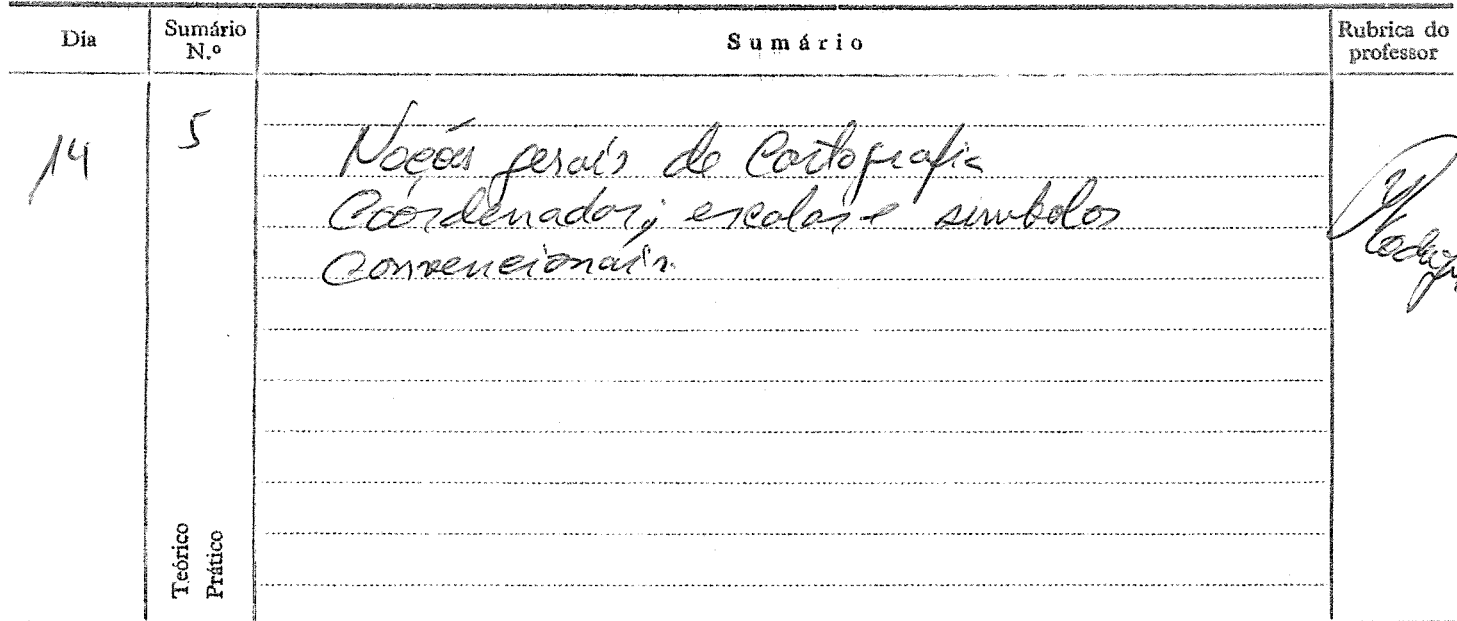 Dia Sumário N.º Sumário Rubrica do professor
14 5 Noções gerais de Cartografia
Coordenadas; escalas e simbolos
Convencionais.
Teórico
Prático